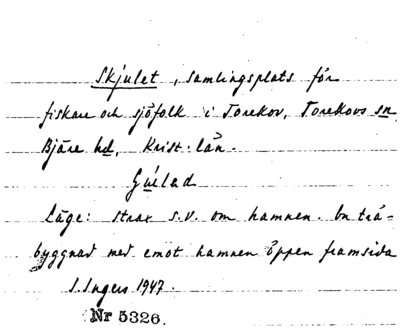 Skjulet, samlingsplats för
fiskare och sjöfolk i Torekov, Torekovs sn
Bjäre hd, Krist. län.
Läge: strax s.v. om hamnen. En trä-
byggnad med emot hamnen öppen framsida
S. Ingers 1947.
Nr 5326.